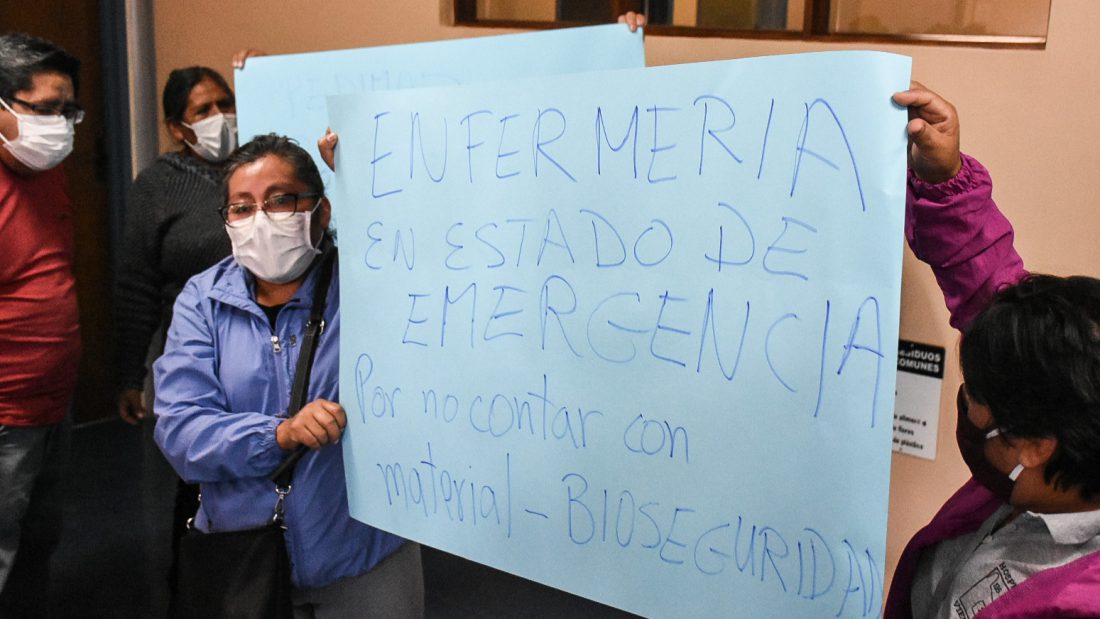 ENFERMERIA
EN ESTADO DE
EMERGENCIA
Por no contar con
material - BIOSEGURIDAD
COMUNES